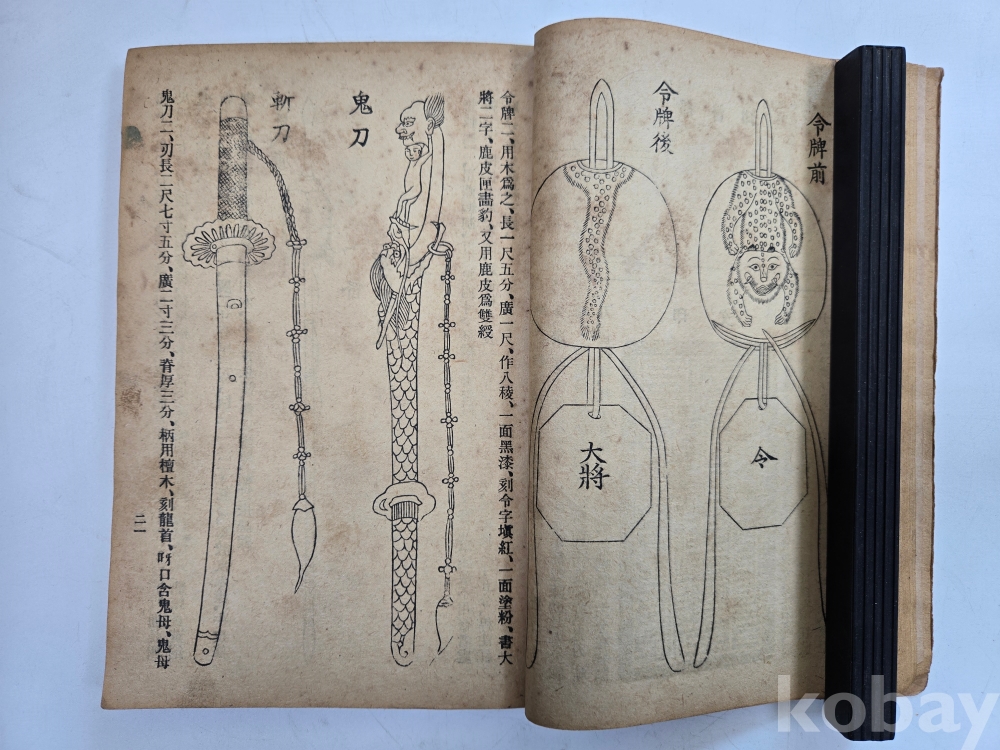 令牌前
令
令牌後
大將
令牌二、用木爲之、長一尺五分、廣一尺、作八稜、一面黑漆、刻令字塡紅、一面塗粉、書大
將二字、鹿皮匣畵豹、又用鹿皮爲雙綬
鬼刀
斬刀
鬼刀二、刃長二尺七寸五分、廣一寸三分、脊厚三分、柄用檀木、刻龍首、呀口含鬼母、鬼母
二一
kobay